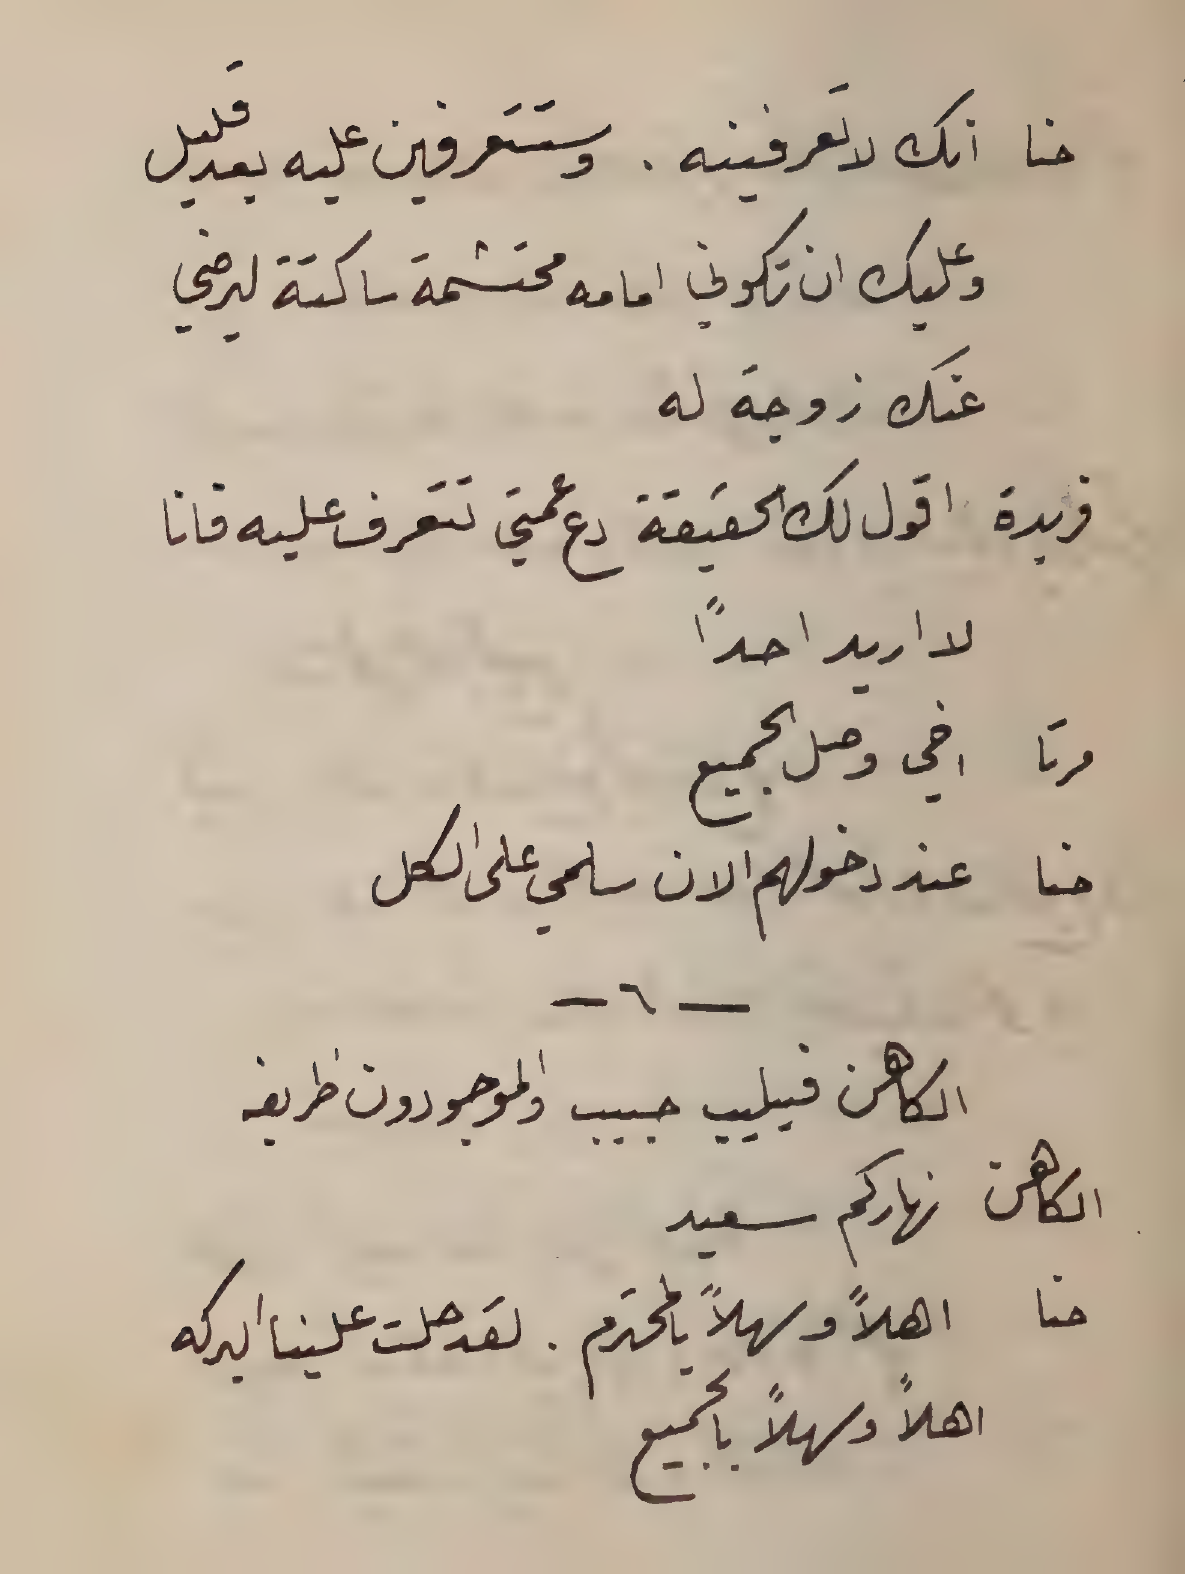 حنا انك لا تعرفينه . وستتعرفين عليه بعد قليل
وعليك ان تكوني امامه محتشمة ساكتة ليرضي
عنك زوجة له
فريدة اقول لك الحقيقة دع عمتي تتعرف عليه فانا
لا اريد احداً
مرتا اخي وصل الجميع
حنا عند دخولهم الان سلمي على الكل
— ٦ —
الكاهن فيليب حبيب والموجودون ظريفه
الكاهن نهاركم سعيد
حنا اهلاً وسهلاً بالمحترم . لقد حلت علينا البركه
اهلاً وسهلاً بالجميع